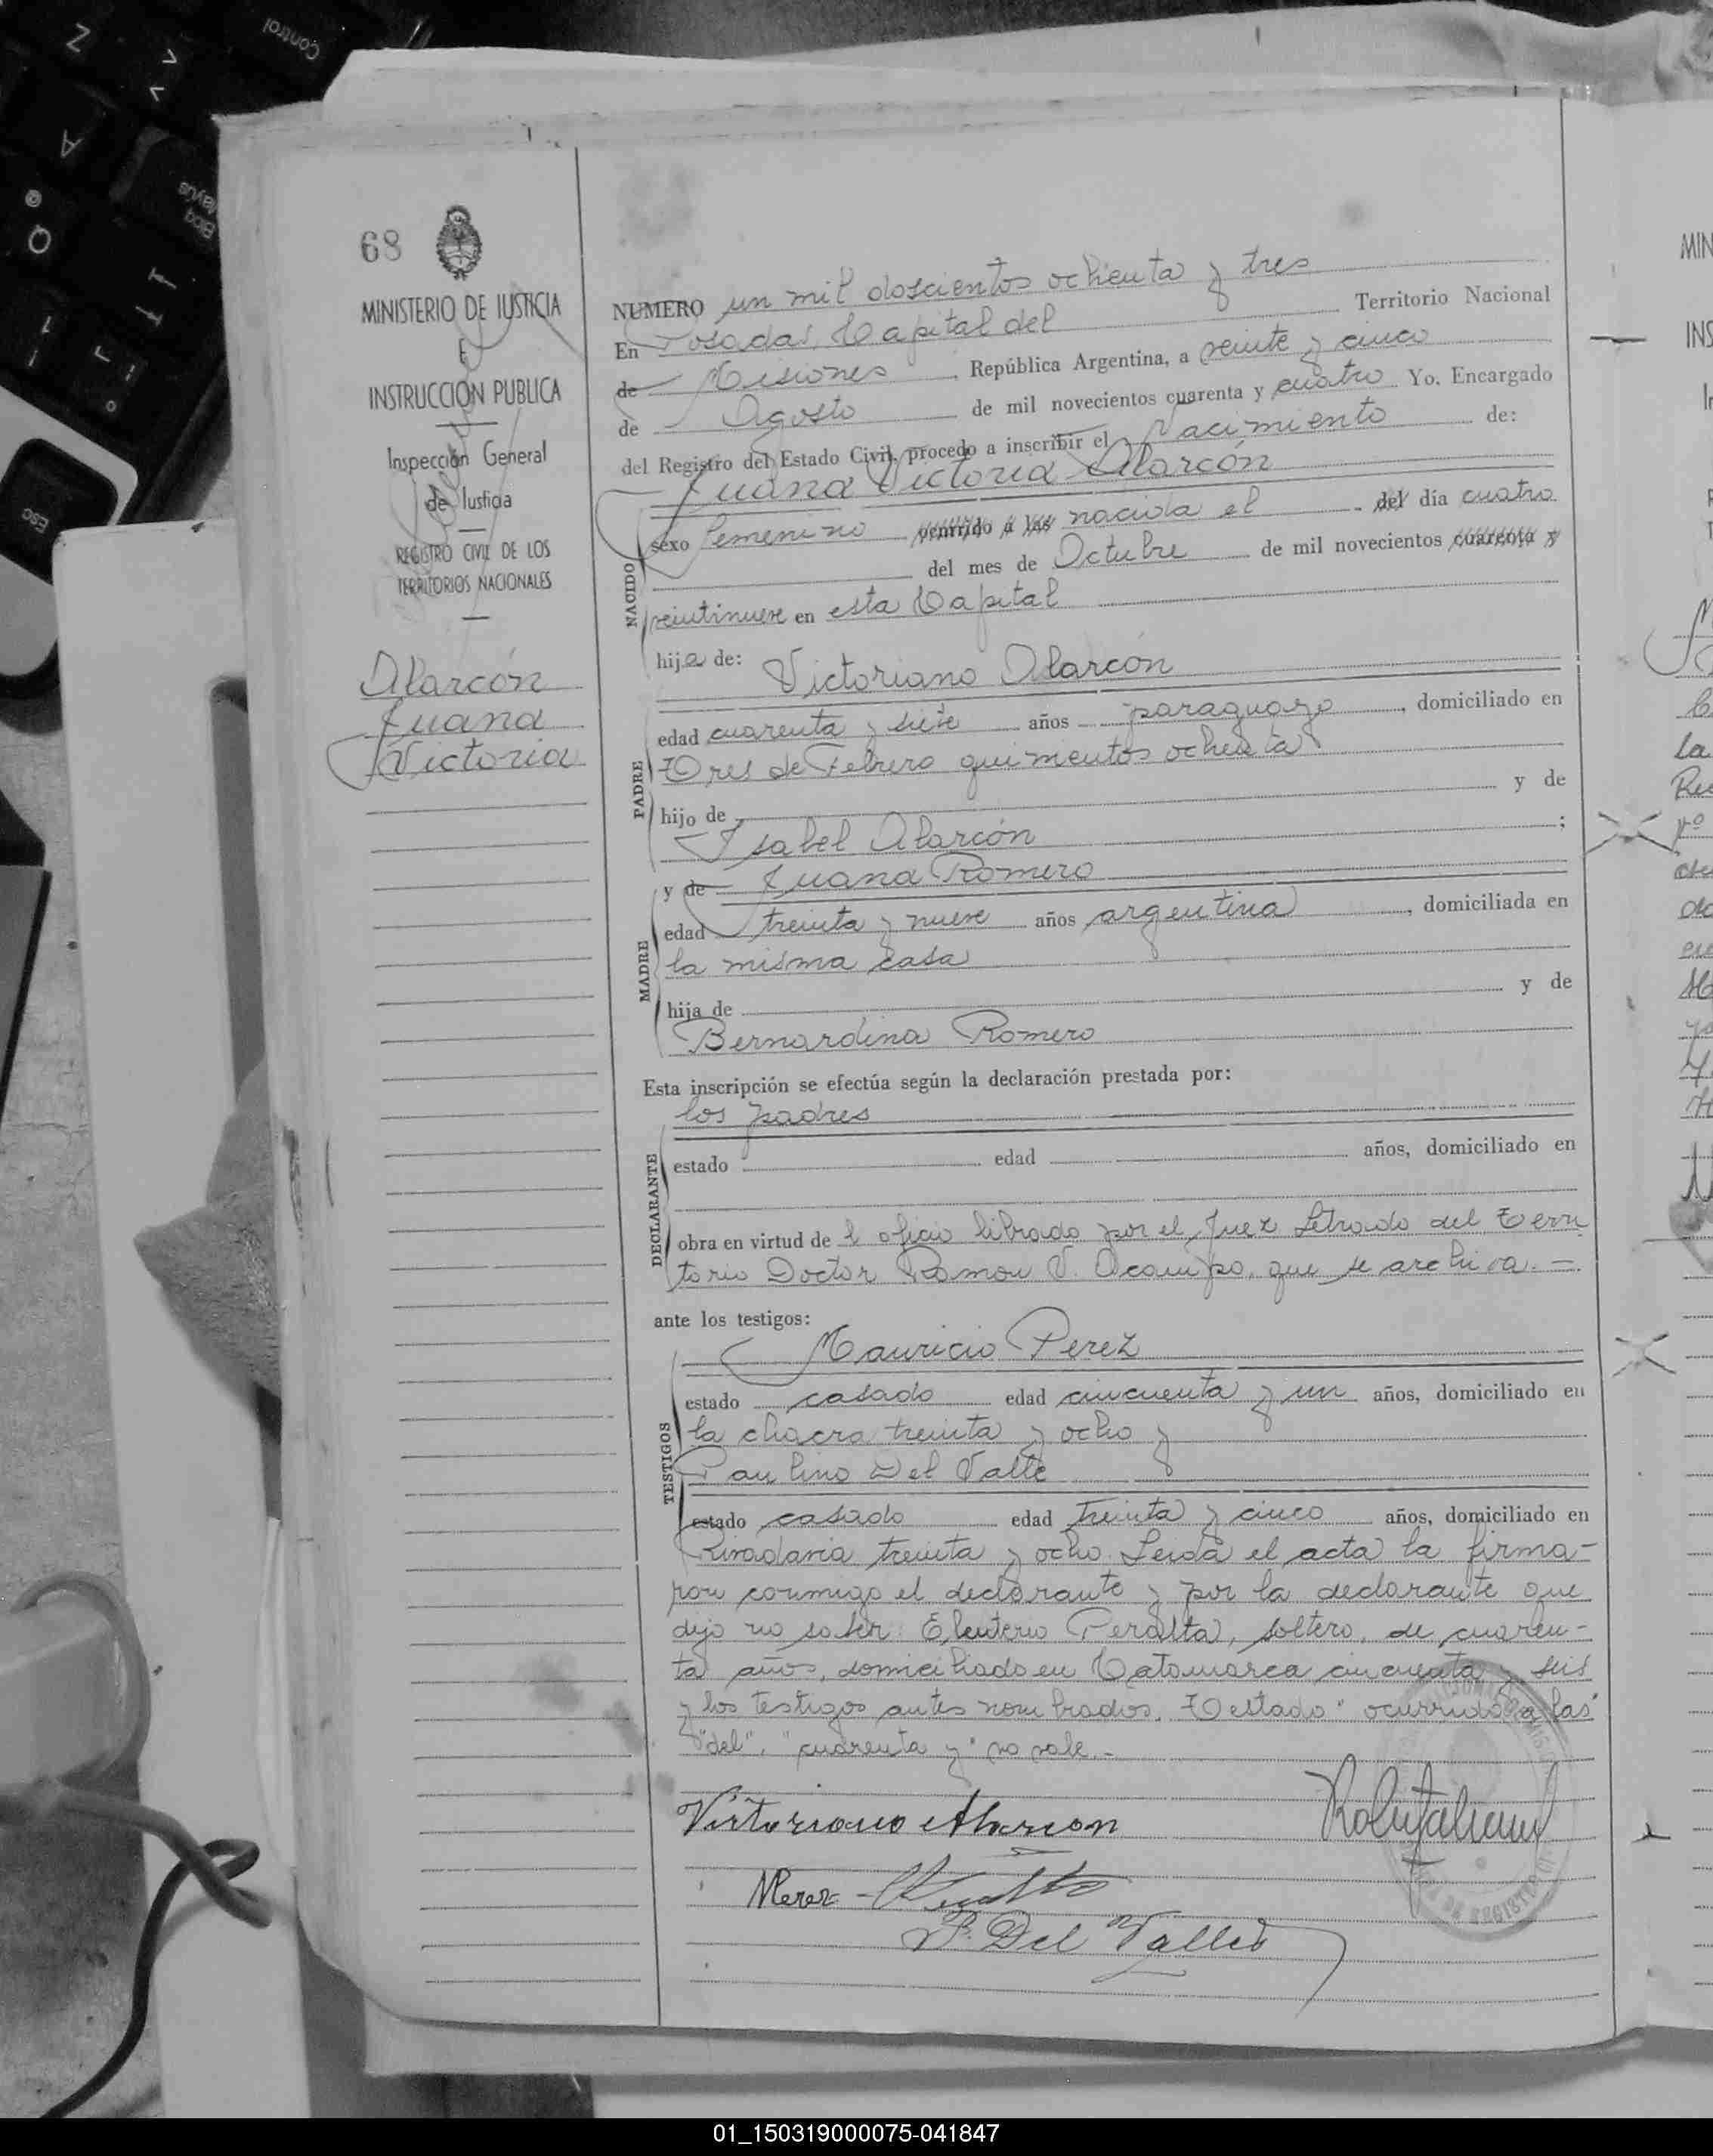 68
MINISTERIO DE JUSTICIA
E
INSTRUCCION PUBLICA
Inspección General
de Justicia
REGISTRO CIVIL DE LOS
TERRITORIOS NACIONALES
Alarcón
Juana
Victoria
NUMERO un mil doscientos ochenta y tres
En Posadas, Capital del Territorio Nacional
de Misiones República Argentina, a veinte y cinco
de Agosto de mil novecientos cuarenta y cuatro Yo, Encargado
del Registro del Estado Civil, procedo a inscribir el Nacimiento de:
Juana Victoria Alarcón
NACIDO
sexo femenino ocurrido a las nacida el del día cuatro
del mes de Octubre de mil novecientos cuarenta y
veintinueve en esta Capital
hija de: Victoriano Alarcón
PADRE
edad cuarenta y siete años paraguayo, domiciliado en
Tres de Febrero quinientos ochenta
hijo de y de
Isabel Alarcón ;
y de Juana Romero
MADRE
edad treinta y nueve años argentina, domiciliada en
la misma casa
hija de y de
Bernardina Romero
Esta inscripción se efectúa según la declaración prestada por:
los padres
DECLARANTE
estado edad años, domiciliado en
obra en virtud de l oficio librado por el Juez Letrado del Terri
torio Doctor Ramon V. Ocampo, que se archiva.—
ante los testigos:
Mauricio Perez
TESTIGOS
estado casado edad cincuenta y un años, domiciliado en
la chacra treinta y ocho y
Paulino Del Valle
estado casado edad treinta y cinco años, domiciliado en
Rivadavia treinta y ocho. Leida el acta la firma-
ron conmigo el declarante y por la declarante que
dijo no saber: Eleuterio Peralta, soltero, de cuaren-
ta años, domiciliado en Catamarca cincuenta y seis
y los testigos antes nombrados. Testado "ocurrido a las"
"del", "cuarenta y" no vale.-
Victoriano Alarcon
MPerez
P. Del Valle
Control
Bloq
Mayús
Esc
Z
A
Q
01_150319000075-041847